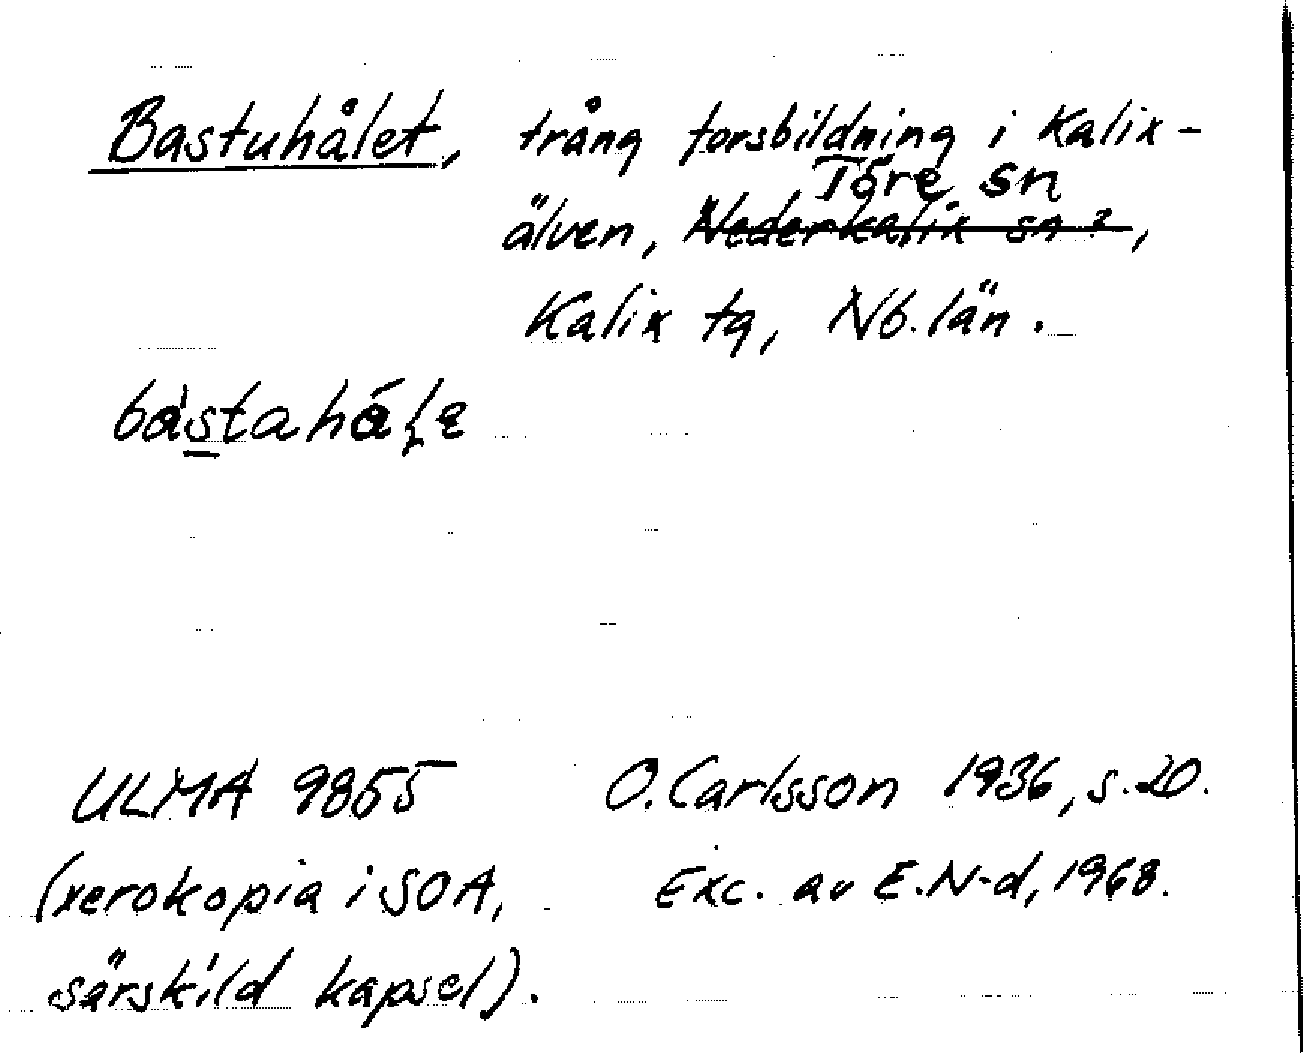 Bastuhålet, trång forsbildning i Kalix-
Töre sn
älven, Nederkalix sn?,
Kalix tg, Nb. län.
ULMA 9855 O. Carlsson 1936, s. 20.
(xerokopia i SOA, Exc. av E. N-d, 1968.
särskild kapsel).